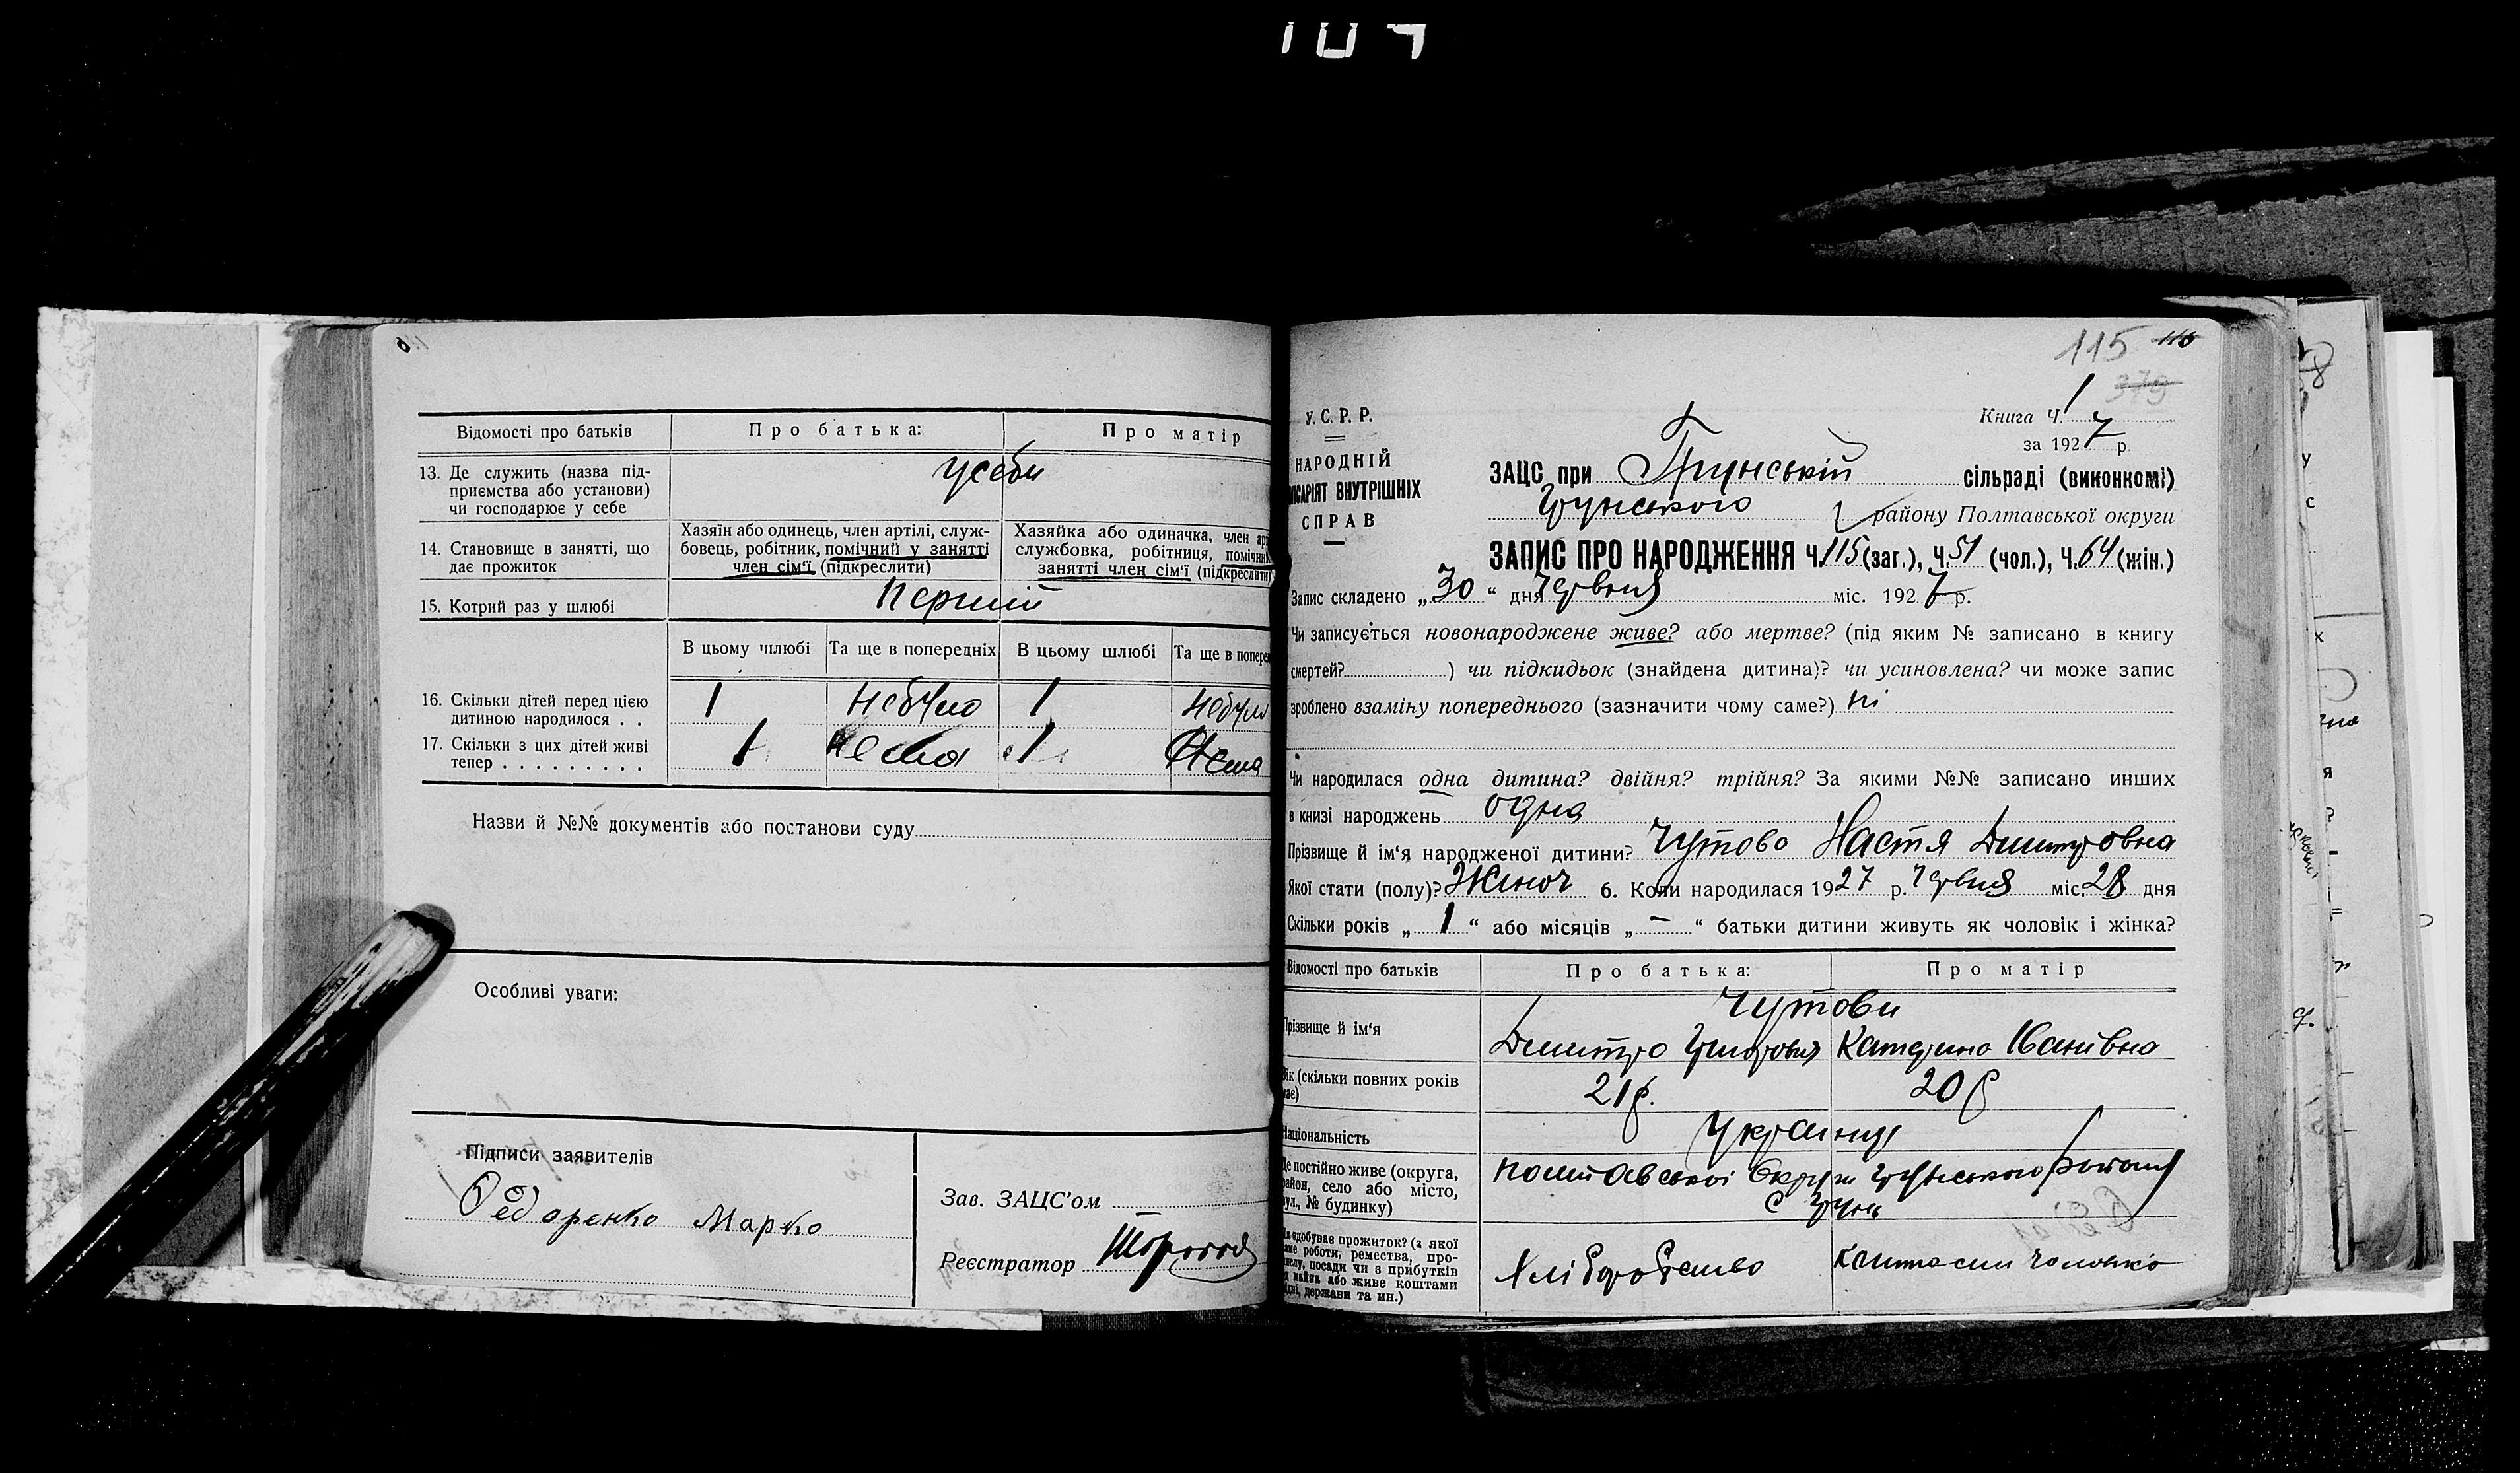 104
Відомості про батьків
Про батька:
Про матір
13. Де служить (назва під-
приємства або установи)
чи господарює у себе
усеби
14. Становище в занятті, що
дає прожиток
Хазяїн або одинець, член артілі, служ-
бовець, робітник, помічний у занятті
член сім'ї (підкреслити)
Хазяйка або одиначка, член ар
службовка, робітниця, помічн
занятті член сім'ї (підкреслити)
15. Котрий раз у шлюбі
Перший
В цьому шлюбі
Та ще в попередніх
В цьому шлюбі
Та ще в попере
16. Скільки дітей перед цією
дитиною народилося . .
1
Небуло
1
Небуло
17. Скільки з цих дітей живі
тепер . . . . . . . . .
1
Нема
1
Нема
Назви й №№ документів або постанови суду
Особливі уваги:
Підписи заявителів
Федоренко Марко
Зав. ЗАЦС'ом
Реєстратор
115 116
378
У.С.Р.Р.
НАРОДНІЙ
ІСАРІЯТ ВНУТРІШНІХ
СПРАВ
Книга Ч. 1
за 1927 р.
ЗАЦС при Грунській сільраді (виконкомі)
Грунського району Полтавської округи
ЗАПИС ПРО НАРОДЖЕННЯ Ч. 115 (заг.), Ч. 51 (чол.), Ч. 64 (жін.)
Запис складено „30“ дня Червня міс. 1927 р.
Чи записується новонароджене живе? або мертве? (під яким № записано в книгу
смертей? ) чи підкидьок (знайдена дитина)? чи усиновлена? чи може запис
зроблено взаміну попереднього (зазначити чому саме?) Ні
Чи народилася одна дитина? двійня? трійня? За якими №№ записано инших
в книзі народжень одна
Прізвище й ім'я народженої дитини? Чутово Настя Дмитровна
Якої стати (полу)? Жіноч 6. Коли народилася 1927 р. Червня міс. 28 дня
Скільки років „1“ або місяців „—“ батьки дитини живуть як чоловік і жінка?
Відомості про батьків
Про батька:
Про матір
Прізвище й ім'я
Чутови
Дмитро Григорович
Катерина Іванівна
Вік (скільки повних років
має)
21 р.
20 р
Національність
Українці
Де постійно живе (округа,
район, село або місто,
вул., № будинку)
Полтавської Округи Грунського району
С Грунь
Як здобуває прожиток? (з якої
саме роботи, ремества, про-
мислу, посади чи з прибутків
майна або живе коштами
держави та ин.)
Хліборобство
Коштами чоловіка